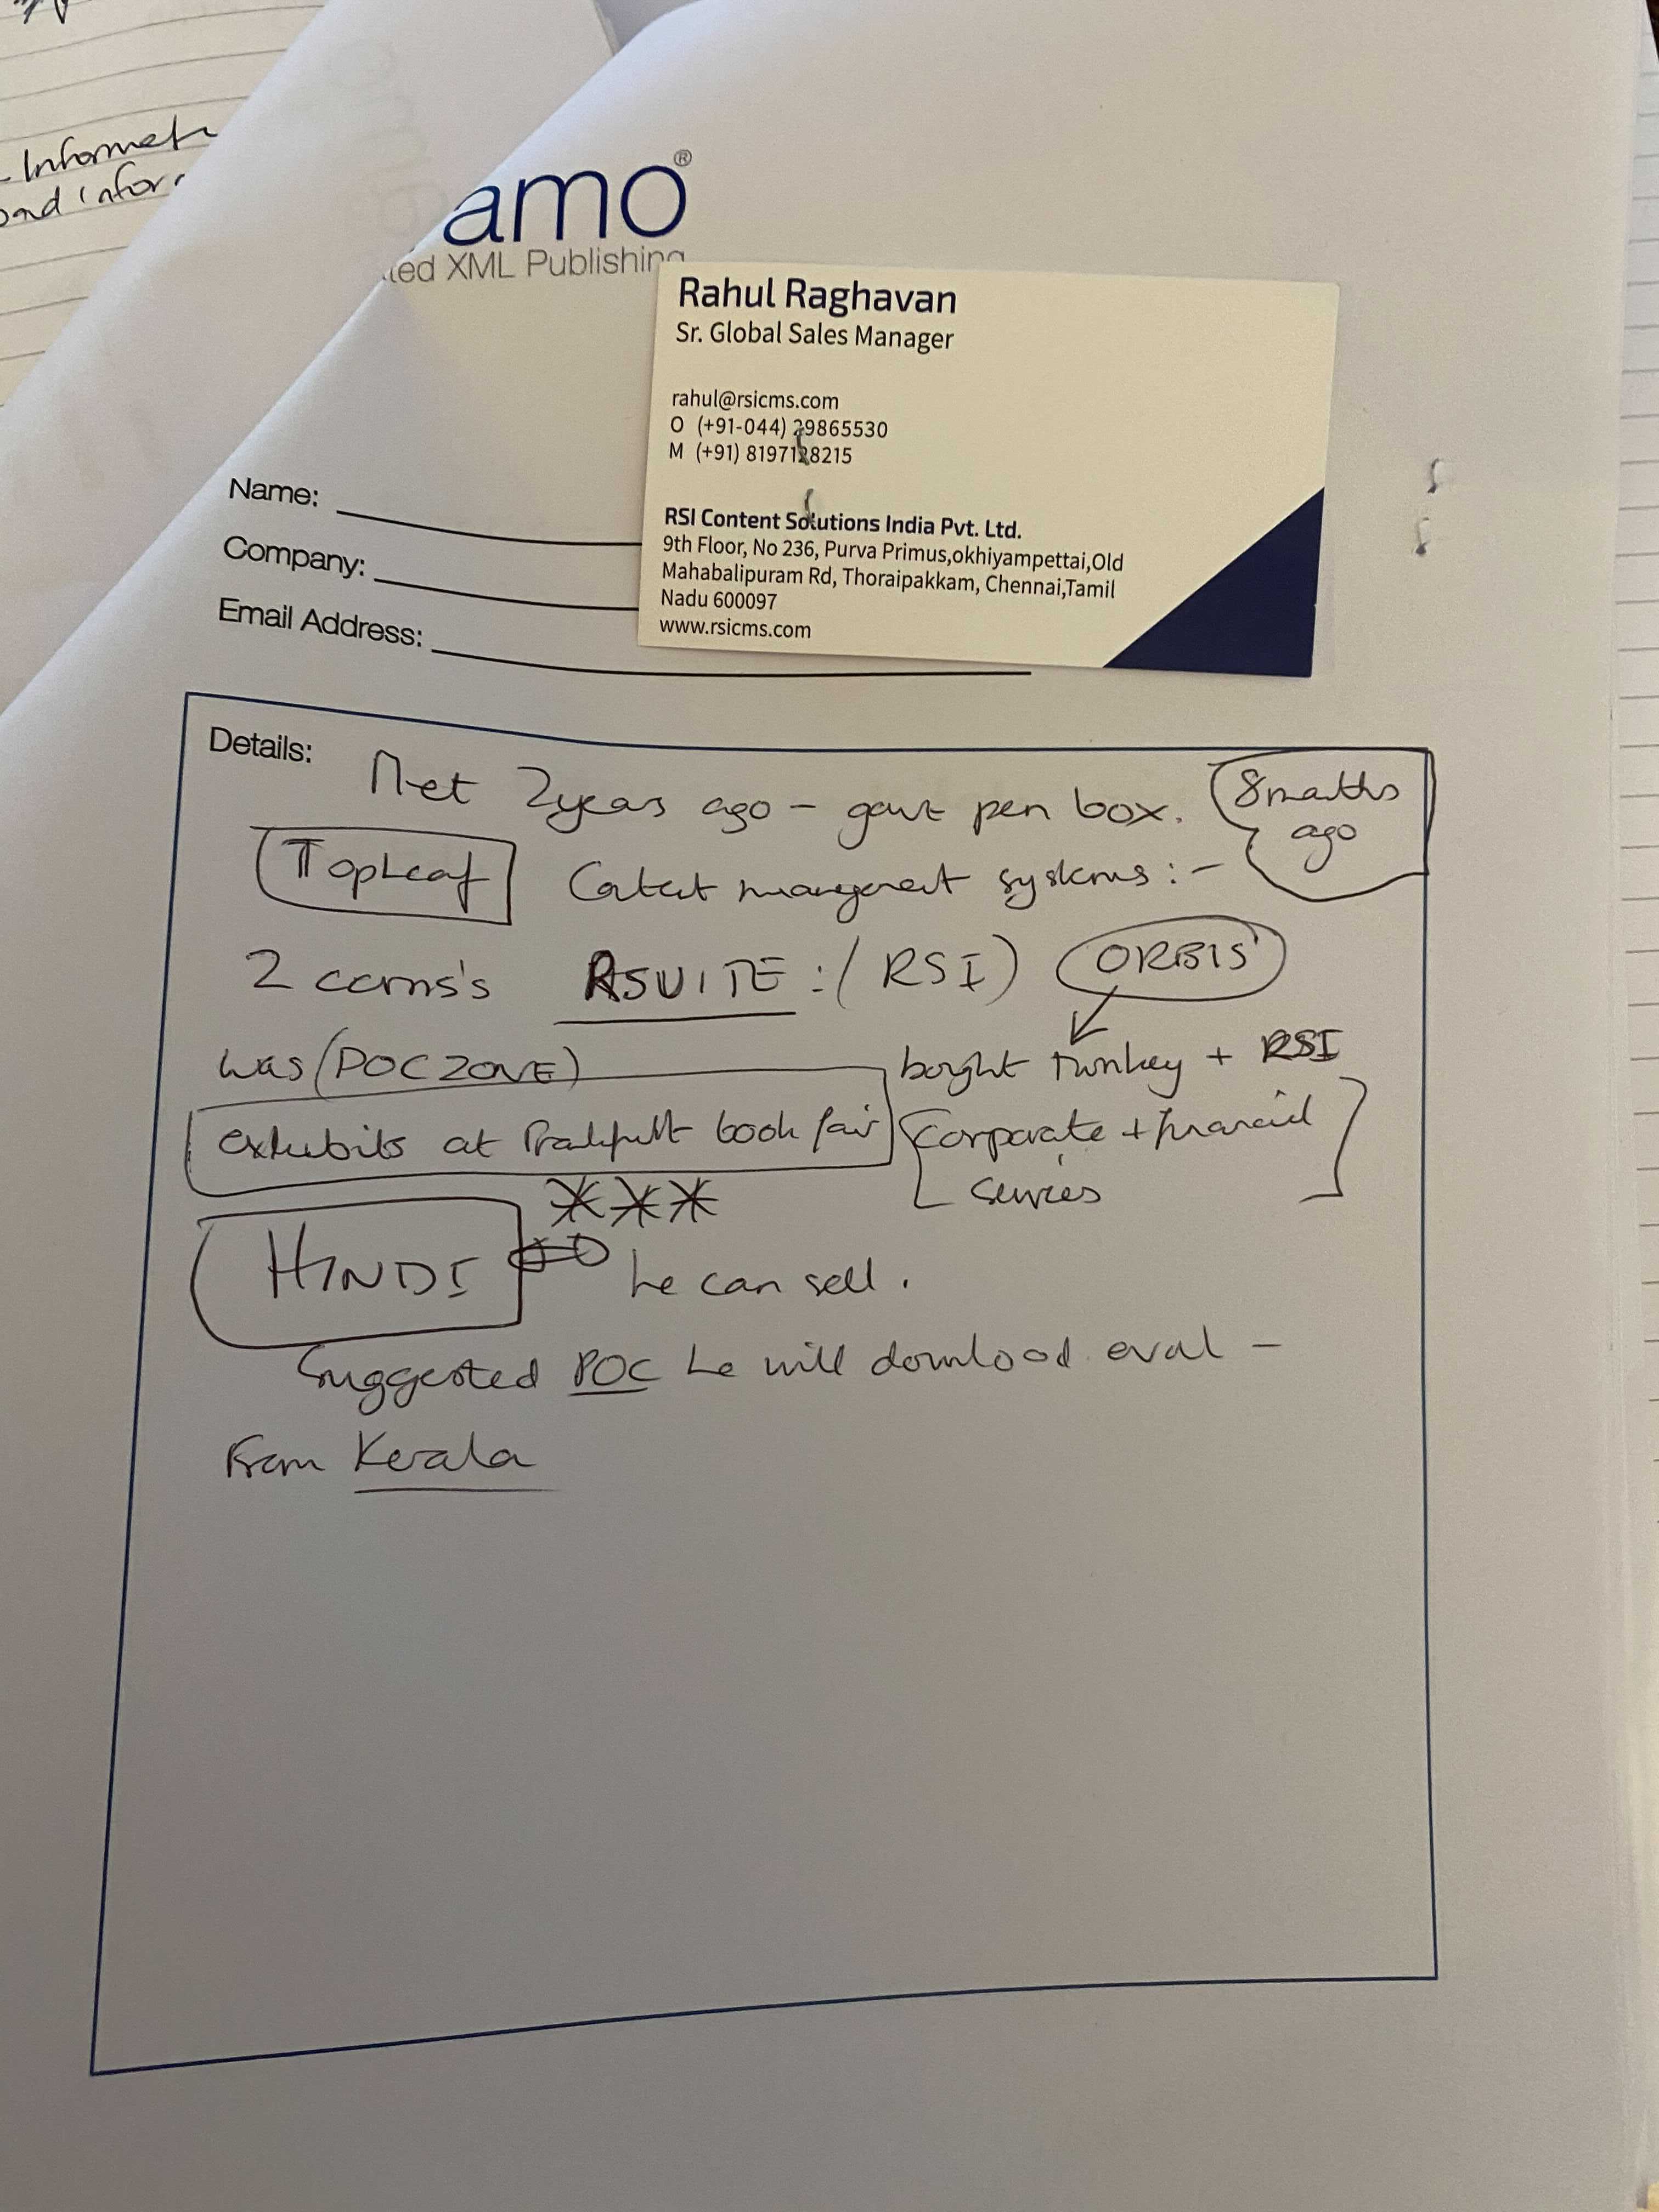 - Informat
and infor
amo®
ted XML Publishing
Rahul Raghavan
Sr. Global Sales Manager
rahul@rsicms.com
O (+91-044) 29865530
M (+91) 8197128215
RSI Content Solutions India Pvt. Ltd.
9th Floor, No 236, Purva Primus,okhiyampettai,Old
Mahabalipuram Rd, Thoraipakkam, Chennai,Tamil
Nadu 600097
www.rsicms.com
Name:
Company:
Email Address:
Details:
Met 2years ago - gave pen box.
8months
ago
TopLeaf
Content management systems:-
2 ccms's RSUITE: (RSI) ORBIS
was (DOCZONE)
bought turnkey + RSI
exhibits at Frankfurt book fair
Corporate + financial
services
***
HINDI
he can sell.
Suggested POC he will download eval -
From Kerala